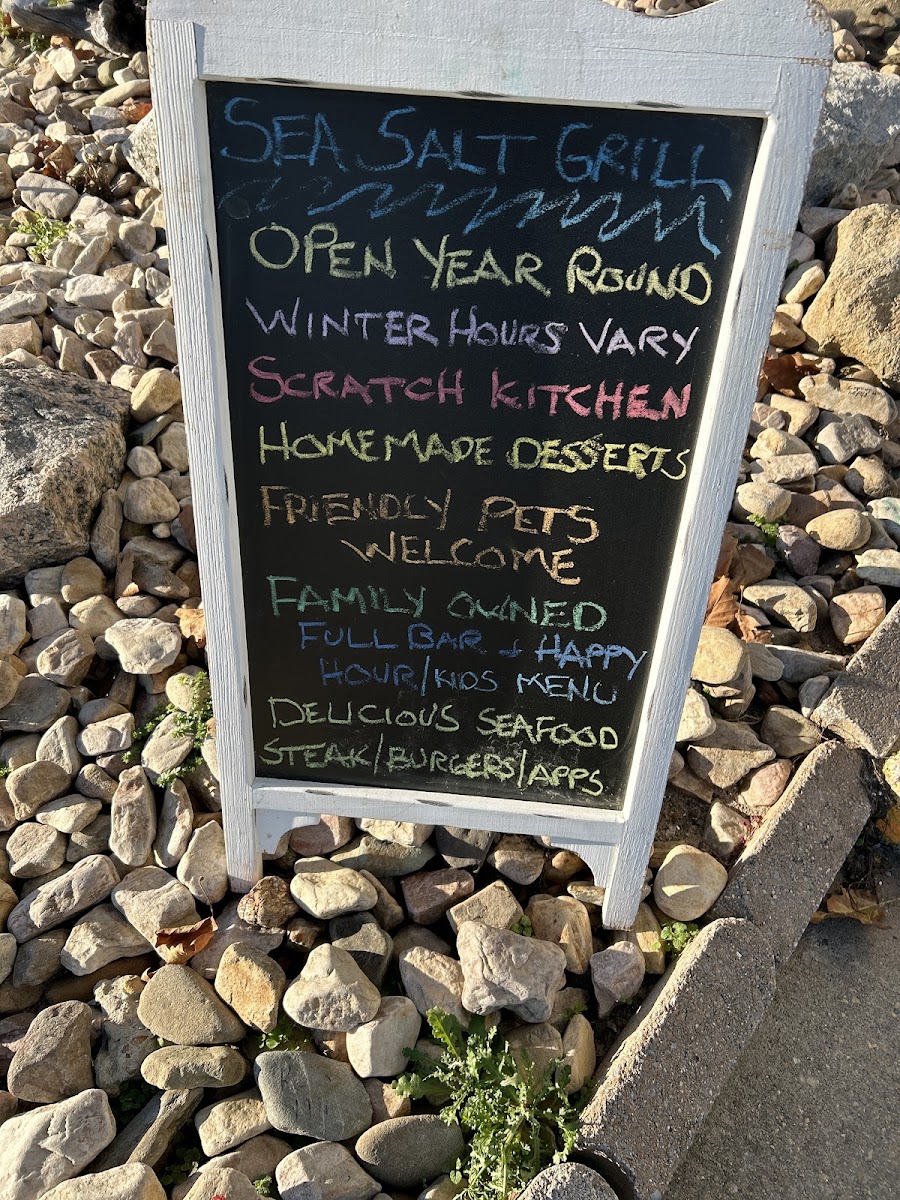 SEA SALT GRILL
OPEN YEAR ROUND
WINTER HOURS VARY
SCRATCH KITCHEN
HOMEMADE DESSERTS
FRIENDLY PETS
WELCOME
FAMILY OWNED
FULL BAR + HAPPY
HOUR/KIDS MENU
DELICIOUS SEAFOOD
STEAK/BURGERS/APPS